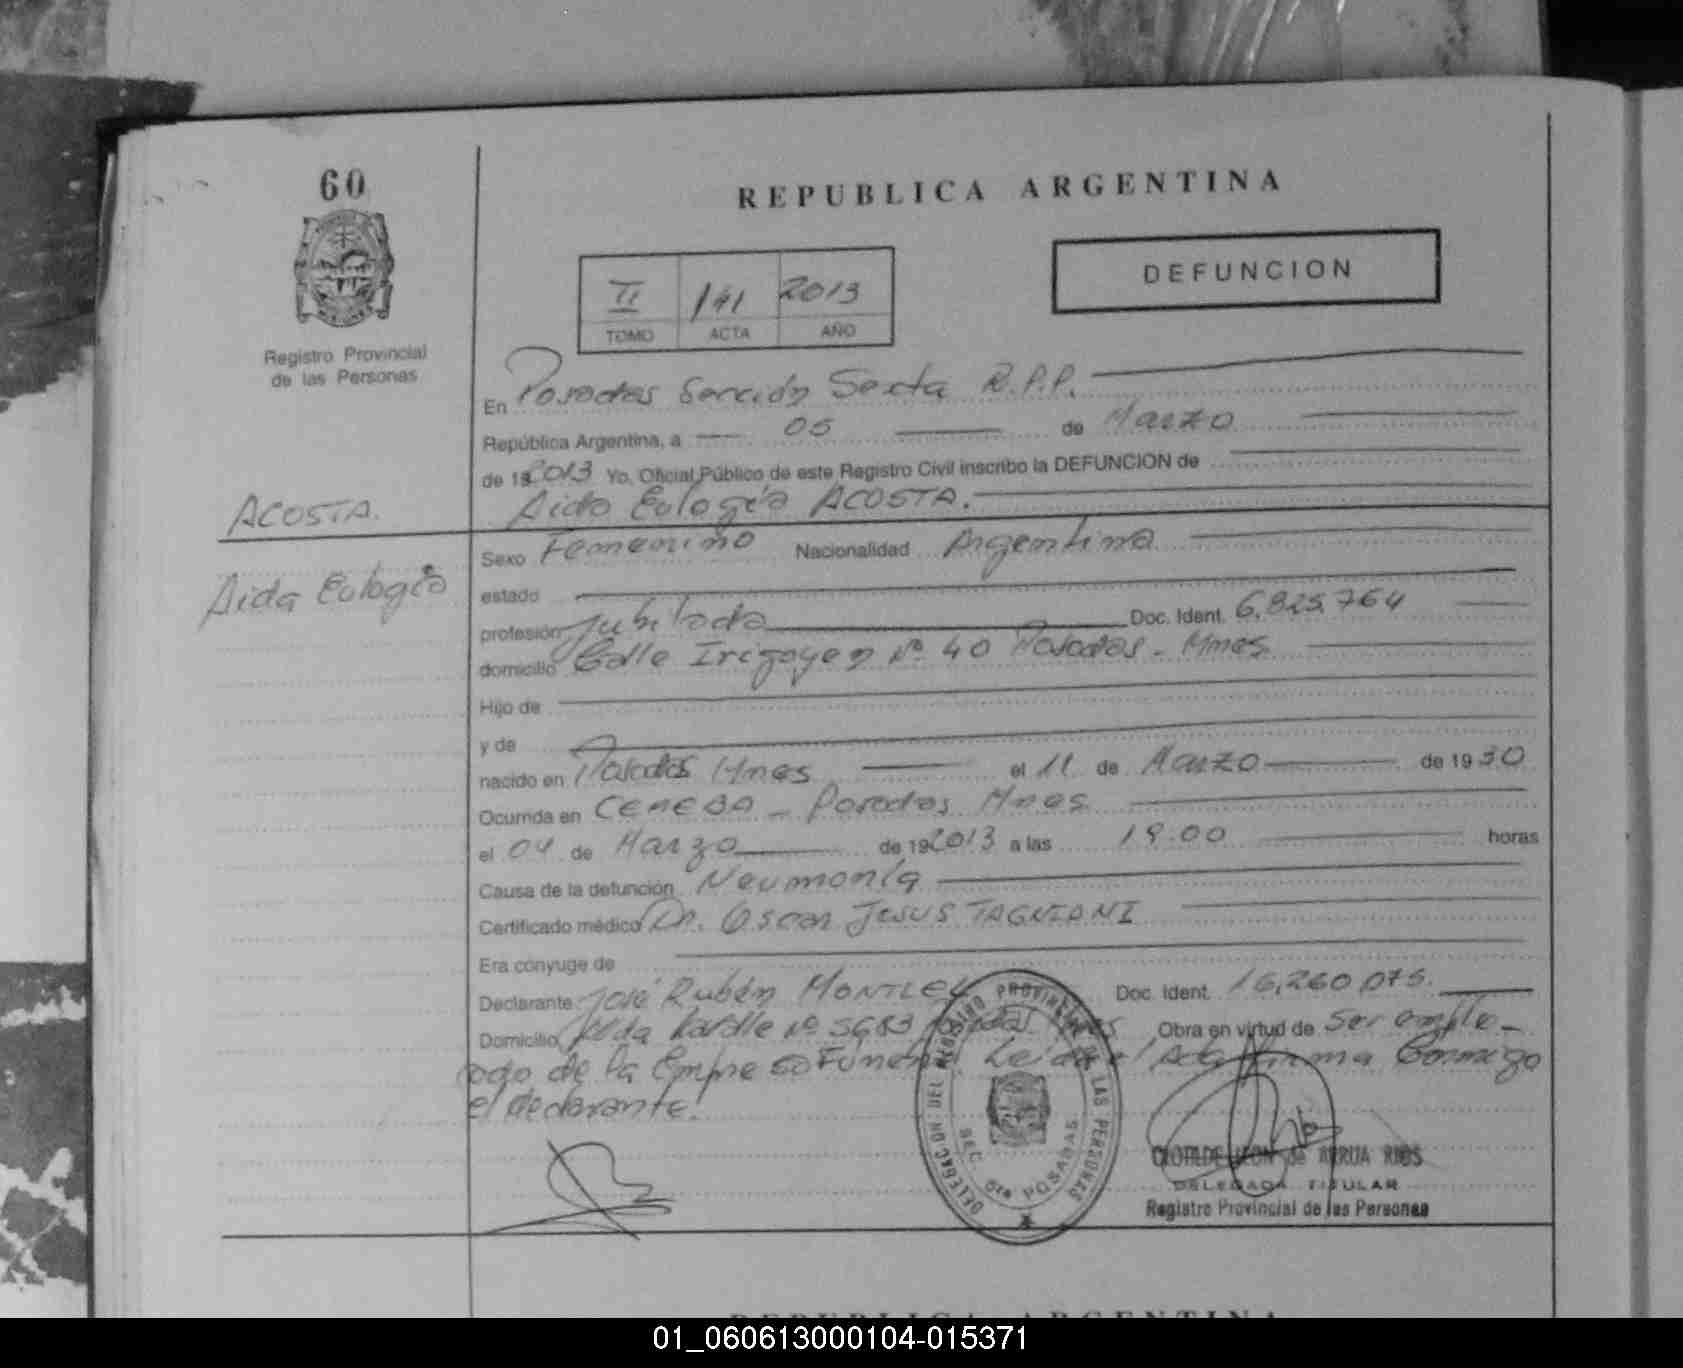 60
REPUBLICA ARGENTINA
DEFUNCION
II 141 2013
TOMO ACTA AÑO
Registro Provincial
de las Personas
En Posadas Sección Sexta R.P.P.
República Argentina, a 05 de Marzo
de 19 2013 Yo, Oficial Público de este Registro Civil inscribo la DEFUNCION de
ACOSTA. Aida Eulogia ACOSTA.
Sexo Femenino Nacionalidad Argentina
Aida Eulogia
estado
profesión Jubilada Doc. Ident. 6.825.764
domicilio Calle Irigoyen Nº 40 Posadas - Mnes
Hijo de
y de
nacido en Posadas Mnes el 11 de Marzo de 1930
Ocurrida en CEMEDA - Posadas Mnes
el 04 de Marzo de 19 2013 a las 19:00 horas
Causa de la defunción Neumonía
Certificado médico Dr. Oscar JESUS TAGNIANI
Era cónyuge de
Declarante José Rubén Doc. Ident. 16,260,075.
Domicilio Nº 5683 Posadas Mnes Obra en virtud de Ser emple-
ado de la Empresa Funeraria Leida el Acta firma Conmigo
el declarante.
DELEGACION DEL REGISTRO PROVINCIAL DE LAS PERSONAS
SEC. 6ta POSADAS
CLOTILDE LEON de ARRUA RIOS
DELEGADA TITULAR
Registro Provincial de las Personas
REPUBLICA ARGENTINA
01_060613000104-015371